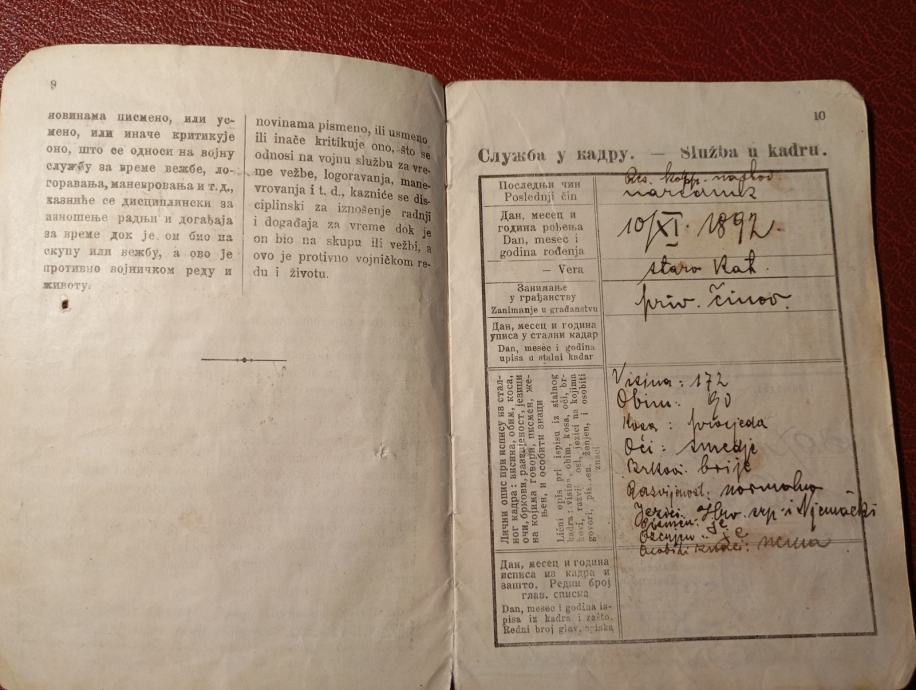 9
новинама писмено, или ус-
мено, или иначе критикује
оно, што се односи на војну
службу за време вежбе, ло-
горавања, маневровања и т.д.,
казниће се дисциплински за
изношење радњи и догађаја
за време док је он био на
скупу или вежбу, а ово је
противно војничком реду и
животу.
novinama pismeno, ili usmeno
ili inače kritikuje ono, što se
odnosi na vojnu službu za vre-
me vežbe, logoravanja, mane-
vrovanja i t. d., kazniće se dis-
ciplinski za iznošenje radnji
i događaja za vreme dok je
on bio na skupu ili vežbi, a
ovo je protivno vojničkom re-
du i životu.
10
Служба у кадру. — Služba u kadru.
Последњи чин
Poslednji čin
Res.
narednik
Дан, месец и
година рођења
Dan, mesec i
godina rođenja
10/XI. 1892.
— Vera
staro kat.
Занимање
у грађанству
Zanimanje u građanstvu
priv. činov.
Дан, месец и година
уписа у стални кадар
Dan, mesec i godina
upisa u stalni kadar
Лични опис при испису из стал-
ног кадра: висина, обим, коса,
очи, бркови, развијеност, језици
на којима говори, писмен, же-
њен, и особити знаци
Lični opis pri ispisu iz stalnog
kadra: visina, obim, kosa, oči, br-
kovi, razvijenost, jezici na kojima
govori, pismen, ženjen, i osobiti
znaci
Visina: 172
Obim: 90
Kosa: prosjeda
Oči: smedje
Brkovi: brije
Razvijenost: normalno
Jezici: Hrv. srp. i Njemački
Pismen: Je
Oženjen: Je
Osobiti znaci: nema
Дан, месец и година
исписа из кадра и
зашто. Редни број
глав. списка
Dan, mesec i godina is-
pisa iz kadra i zašto.
Redni broj glav. spiska